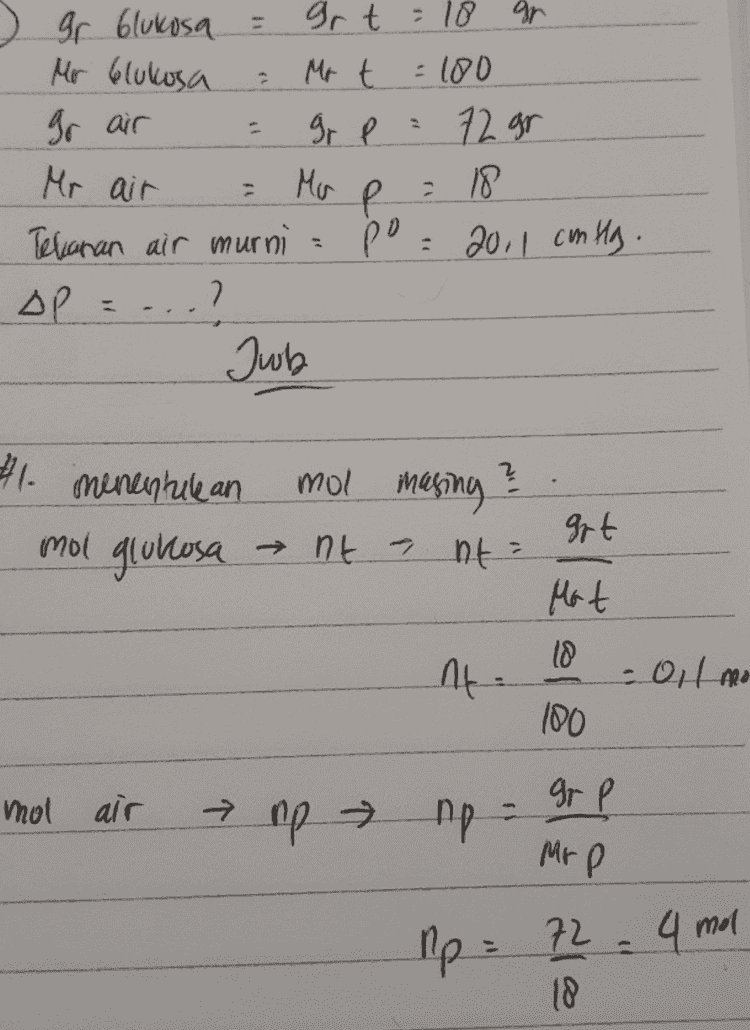 ) gr Glukosa = gr t = 18 gr
Mr Glukosa = Mr t = 180
gr air = gr p = 72 gr
Mr air = Mr p = 18
Tekanan air murni = P⁰ = 20,1 cmHg.
ΔP = ....?
Jwb
#1. menentukan mol masing² .
mol glukosa → nt → nt = gr t / Mr t
nt = 18 / 180 = 0,1 mo
mol air → np → np = gr p / Mr p
np = 72 / 18 = 4 mol